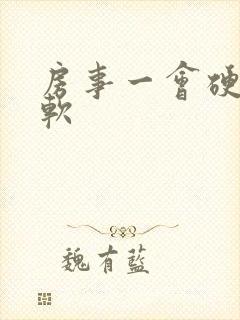 房事一會硬
軟
魏有藍